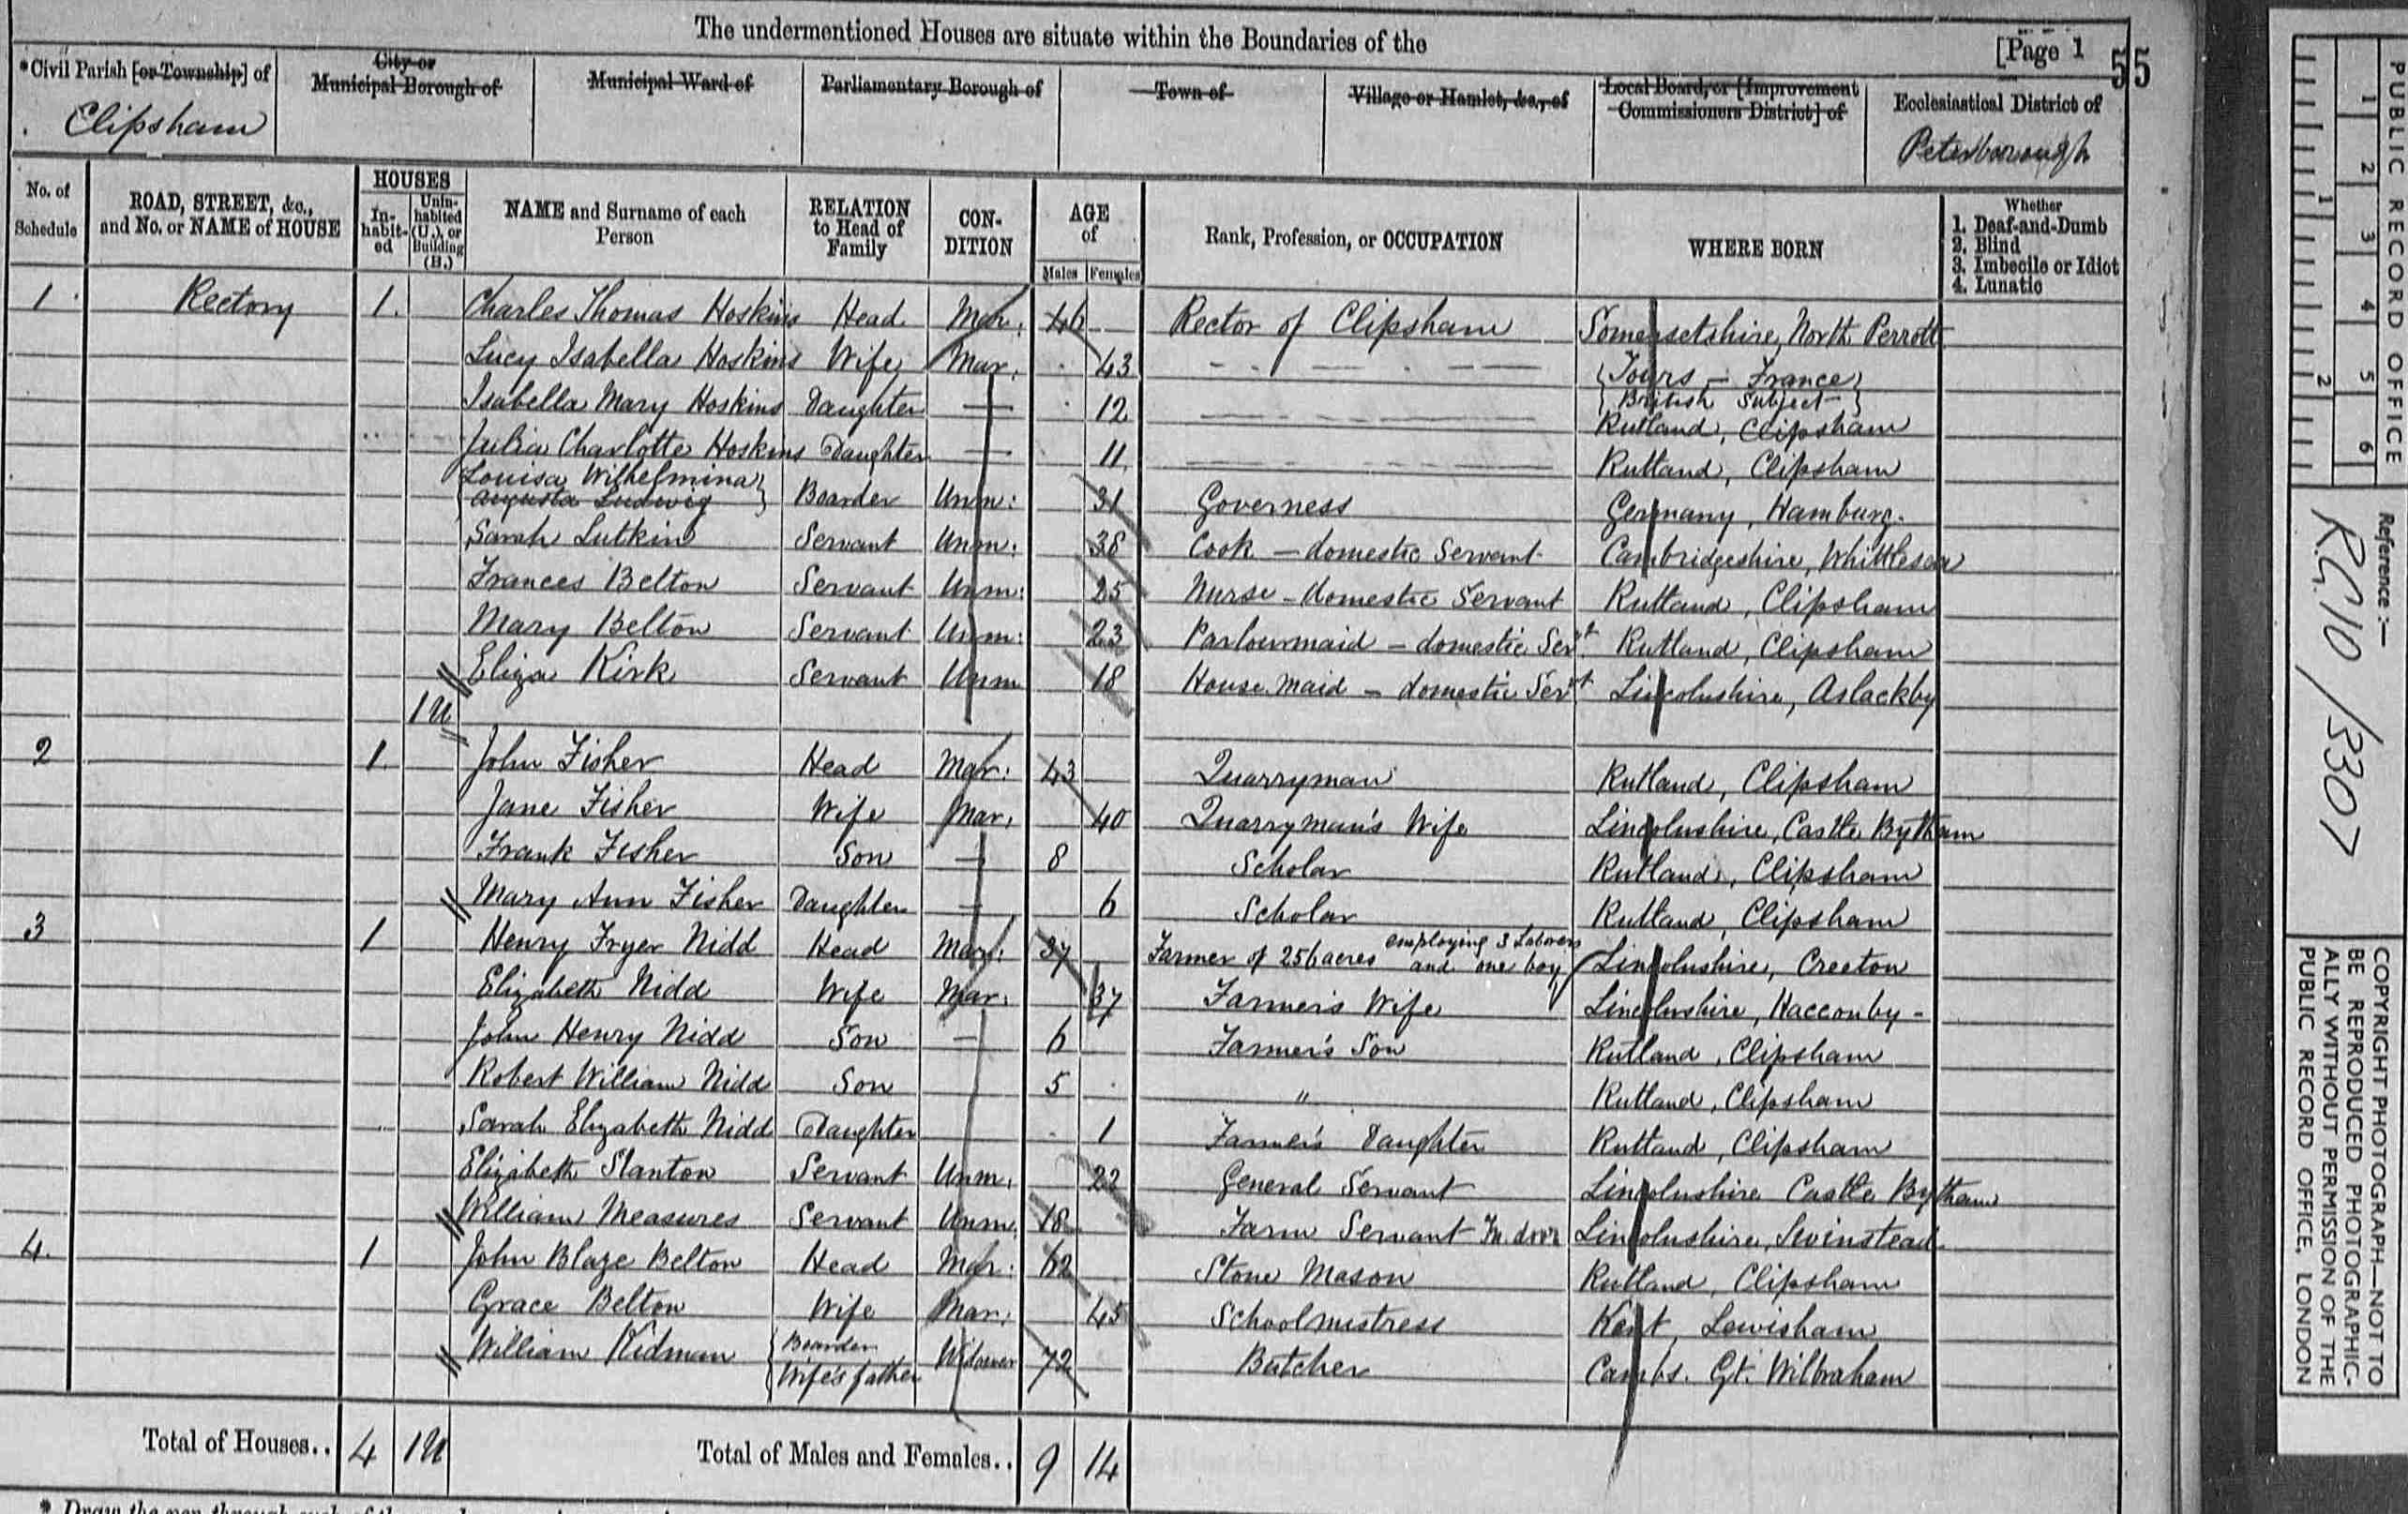 The undermentioned Houses are situate within the Boundaries of the
[Page 1
55
*Civil Parish [or Township] of
Clipsham
City or Municipal Borough of
Municipal Ward of
Parliamentary Borough of
Town of
Village or Hamlet, &c., of
Local Board, or [Improvement Commissioners District] of
Ecclesiastical District of
Peterborough
No. of Schedule
ROAD, STREET, &c., and No. or NAME of HOUSE
HOUSES
In-habit-ed
Unin-habited (U.), or Building (B.)
NAME and Surname of each Person
RELATION to Head of Family
CON-DITION
AGE of
Males
Females
Rank, Profession, or OCCUPATION
WHERE BORN
Whether
1. Deaf-and-Dumb
2. Blind
3. Imbecile or Idiot
4. Lunatic
1 Rectory 1. Charles Thomas Hoskins Head Mar. 46 Rector of Clipsham Somersetshire, North Perrott
Lucy Isabella Hoskins Wife Mar. 43 {Tours - France} {British Subject}
Isabella Mary Hoskins Daughter — 12 Rutland, Clipsham
Julia Charlotte Hoskins Daughter — 11 Rutland, Clipsham
{Louisa Wilhelmina Augusta Ludwig} Boarder Unm: 31 Governess Germany, Hamburg.
Sarah Lutkin Servant Unm: 38 Cook - domestic Servant Cambridgeshire, Whittlesea
Frances Belton Servant Unm: 25 Nurse - domestic Servant Rutland, Clipsham
Mary Belton Servant Unm: 23 Parlourmaid - domestic Servt. Rutland, Clipsham
Eliza Kirk Servant Unm 18 House maid - domestic Servt. Lincolnshire, Aslackby
1U
2 1. John Fisher Head Mar: 43 Quarryman Rutland, Clipsham
Jane Fisher Wife Mar. 40 Quarryman's Wife Lincolnshire, Castle Bytham
Frank Fisher Son — 8 Scholar Rutland, Clipsham
Mary Ann Fisher Daughter — 6 Scholar Rutland, Clipsham
3 1 Henry Fryer Nidd Head Mar: 37 Farmer of 256 acres employing 3 Laborers and one boy Lincolnshire, Creeton
Elizabeth Nidd Wife Mar. 37 Farmer's Wife Lincolnshire, Hacconby -
John Henry Nidd Son — 6 Farmer's Son Rutland, Clipsham
Robert William Nidd Son 5 " Rutland, Clipsham
Sarah Elizabeth Nidd Daughter 1 Farmer's Daughter Rutland, Clipsham
Elizabeth Stanton Servant Unm. 22 General Servant Lincolnshire Castle Bytham
William Measures Servant Unm. 18 Farm Servant In door Lincolnshire, Swinstead
4. 1 John Blaze Belton Head Mar: 62 Stone Mason Rutland, Clipsham
Grace Belton Wife Mar. 45 Schoolmistress Kent, Lewisham
William Kidman {Boarder Wife's father Widower 72 Butcher Cambs. Gt. Wilbraham
Total of Houses.. 4 1U Total of Males and Females.. 9 14
PUBLIC RECORD OFFICE
1 2 3 4 5 6
1 2
Reference :—
R.G. 10 / 3307
COPYRIGHT PHOTOGRAPH—NOT TO
BE REPRODUCED PHOTOGRAPHIC-
ALLY WITHOUT PERMISSION OF THE
PUBLIC RECORD OFFICE, LONDON